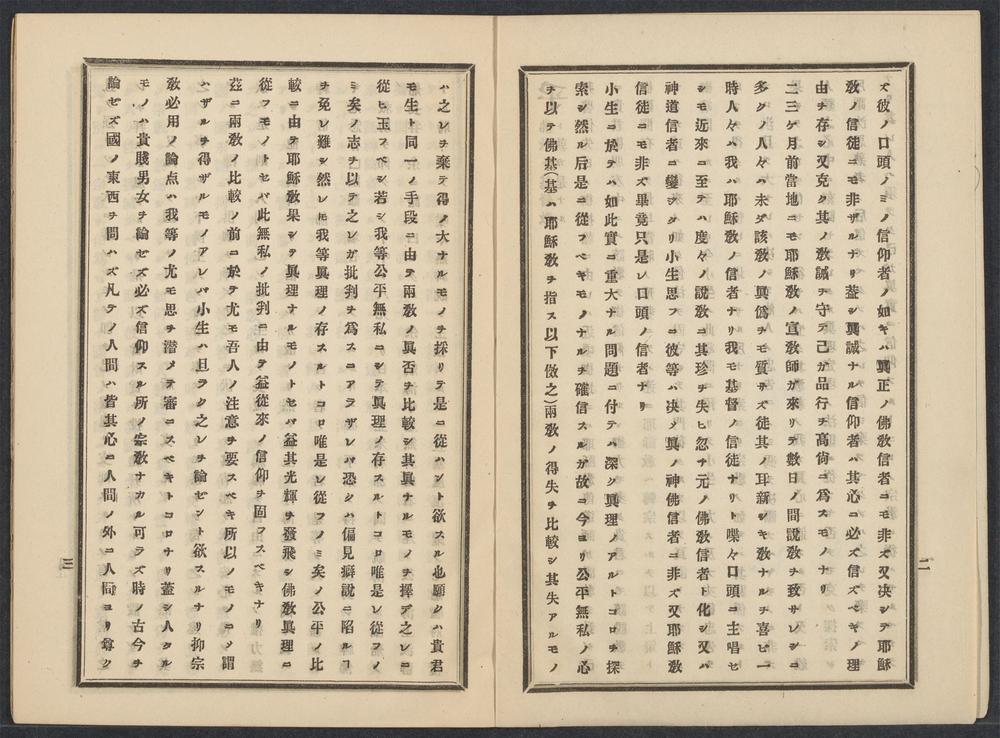 ズ彼ノ口頭ノミノ信仰者ノ如キハ眞正ノ佛敎信者ニモ非ズ又决シテ耶穌
敎ノ信徒ニモ非ザルナリ葢シ眞誠ナル信仰者ハ其心ニ必ズ信ズベキノ理
由ヲ存シ又克ク其ノ敎誡ヲ守テ己ガ品行ヲ高尙ニ爲スモノナリ
二三ケ月前當地ニモ耶穌敎ノ宣敎師ガ來リテ數日ノ間說敎ヲ致サレシニ
多クノ人々ハ未ダ該敎ノ眞僞ヲモ質サズ徒其ノ耳新シキ敎ナルヲ喜ビ一
時人々ハ我ハ耶穌敎ノ信者ナリ我モ基督ノ信徒ナリト喋々口頭ニ主唱セ
シモ近來ニ至テハ度々ノ說敎ニ其珍ヲ失ヒ忽チ元ノ佛敎信者ト化シ又ハ
神道信者ニ變シタリ小生思フニ彼等ハ决メ眞ノ神佛信者ニ非ズ又耶穌敎
信徒ニモ非ズ畢竟只是レ口頭ノ信者ナリ
小生ニ於テハ如此實ニ重大ナル問題ニ付テハ深ク眞理ノアルトコロヲ探
索シ然ル后是ニ從フベキモノナルヲ確信スルガ故ニ今ヨリ公平無私ノ心
ヲ以テ佛基(基ハ耶穌敎ヲ指ス以下倣之)兩敎ノ得失ヲ比較シ其失アルモノ
二
ハ之レヲ棄テ得ノ大ナルモノヲ採リテ是ニ從ハント欲スル也願クハ貴君
モ生ト同一ノ手段ニ由テ兩敎ノ眞否ヲ比較シ其眞ナルモノヲ擇デ之レニ
從ヒ玉フベシ若シ我等公平無私ニシテ眞理ノ存スルトコロ唯是レ從フノ
ミ矣ノ志ヲ以テ之レガ批判ヲ爲スニアラザレバ恐シハ偏見癖說ニ陷ルヿ
ヲ免レ難シ然レ𪜈我等眞理ノ存スルトコロ唯是レ從フノミ矣ノ公平ノ比
較ニ由テ耶穌敎果シテ眞理ナルモノトセバ益其光輝ヲ發飛シ佛敎眞理ニ
從フモノトセバ此無私ノ批判ニ由テ益從來ノ信仰ヲ固フスベキナリ
茲ニ兩敎ノ比較ノ前ニ於テ尤モ吾人ノ注意ヲ要スベキ所以ノモノニシ謂
ハザルヲ得ザルモノアレバ小生ハ且ラク之レヲ論ゼント欲スルナリ抑宗
敎必用ノ論点ハ我等ノ尤モ思ヲ潜メテ審ニスベキトコロナリ葢シ人タル
モノハ貴賤男女ヲ論ゼズ必ズ信仰スル所ノ宗敎ナカル可ラズ時ノ古今ヲ
論ゼズ國ノ東西ヲ問ハズ凡ラノ人間ハ皆其心ニ人間ノ外ニ人間ヨリ尊ク
三